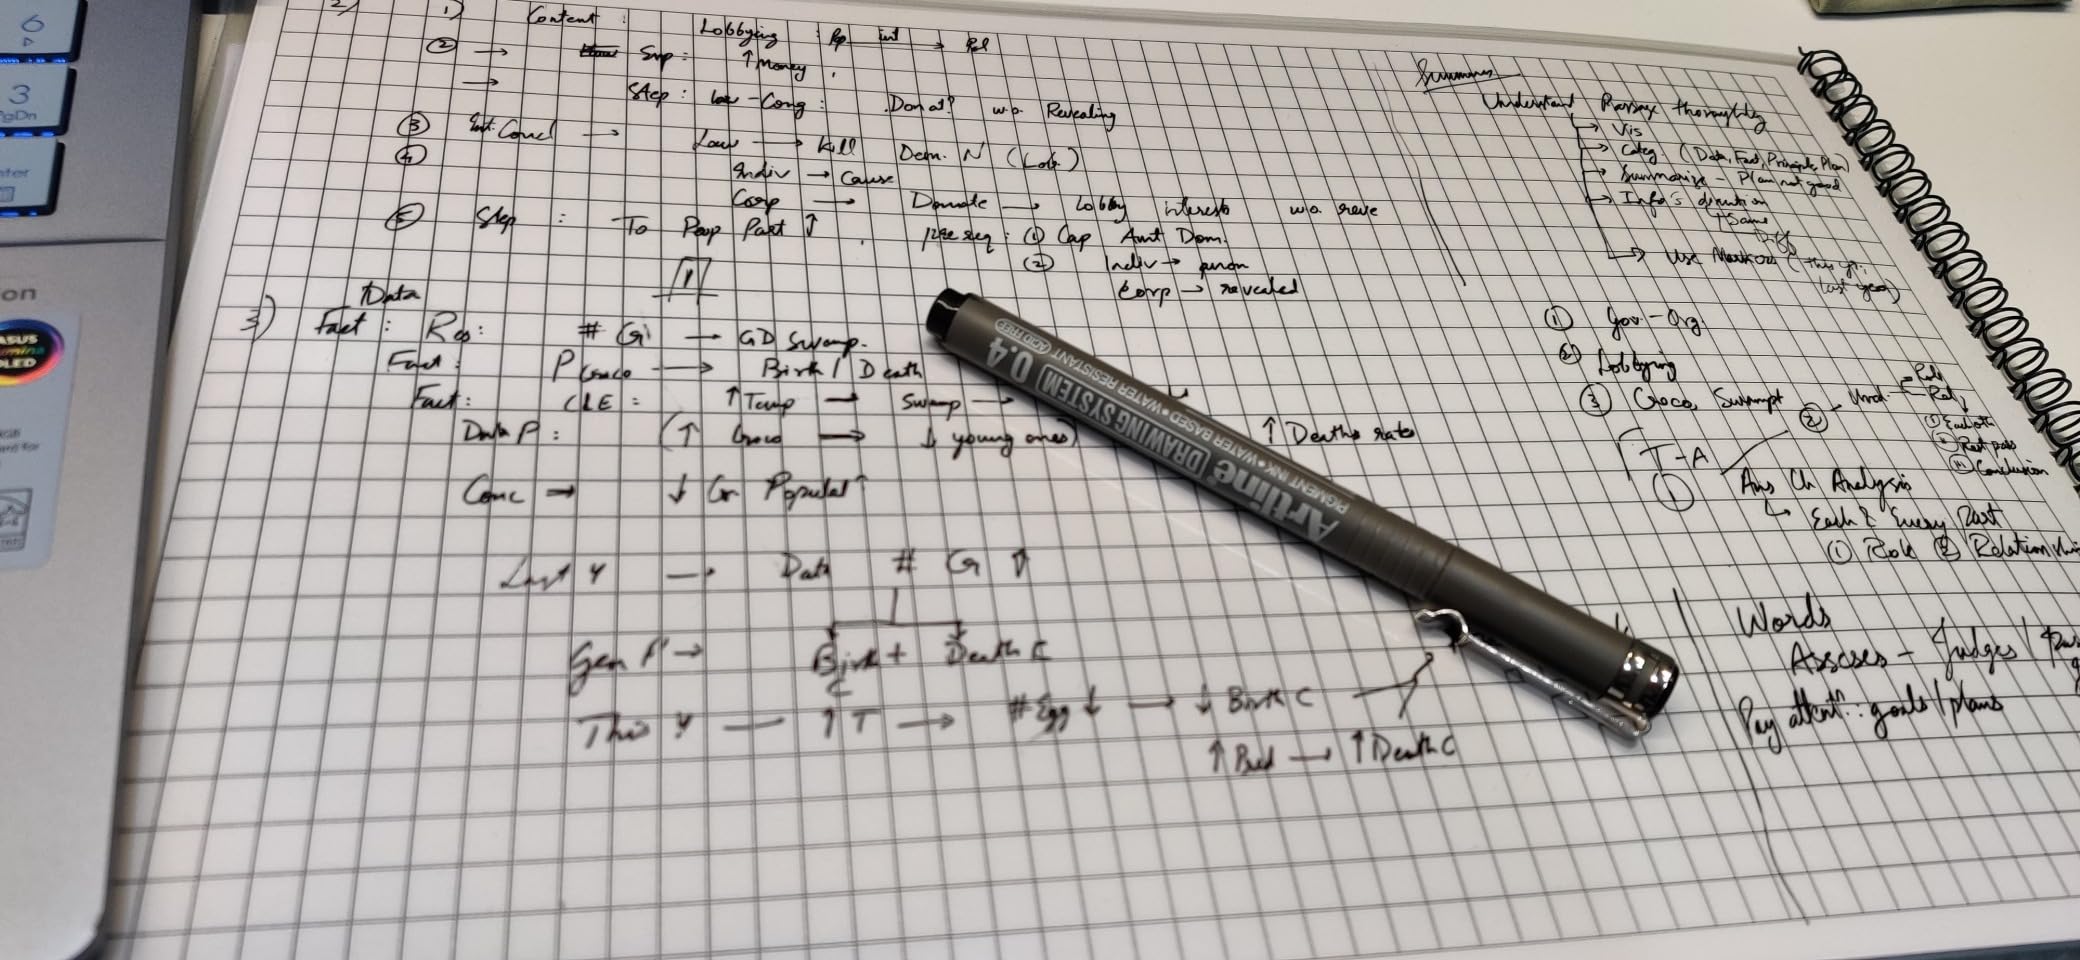 6
3
PgDn
on
ASUS
2)
1) Content : Lobbying : Pop int → Pol
② → Sup : ↑ Money
→ Step : law - Cong : Donat? w.o. Revealing
③ Int. Concl → Law → Kill Dem. N (Lob.)
④ Indiv → Cause
Corp → Donate → Lobby interests w.o. reve
⑤ Step : To Peop Part ↑ . ① Cap Amt Dom.
② Indiv → person
Corp → revealed
Data
3) Fact : Res : # G → GD Swamp.
Fact : P Croco → Birth / Death
Fact : CLE : ↑ Temp → Swamp →
Data P : (↑ Croco → ↓ young ones) ↑ Deaths rate
Conc → ↓ Cr Populat↑
Last Y → Data # G ↑
Gen P → Birth + Death C
C
This Y — ↑ T → # Egg ↓ → ↓ Birth C
↑ Pred → ↑ Death C
Artline DRAWING SYSTEM 0.4
PIGMENT INK • WATER BASED • WATER RESISTANT ACID FREE
Summary
Understand Passage thoroughly
→ Vis
→ Categ (Data, Fact, Principle, Plan)
→ Summarize - Plan not good
→ Info's direction
Same
Diff
→ Use Markers (this yr, last year)
① Gov - Org.
② Lobbying
③ Croco, Swampt
② Und. Role
Rel
① Each oth
② Rest pass
③ Conclusion
T-A
① Ans Ch Analysis
→ Each & Every Part
① Role ② Relationshi
Words
Assess - Judges /
Pay attent^n : goals / plans